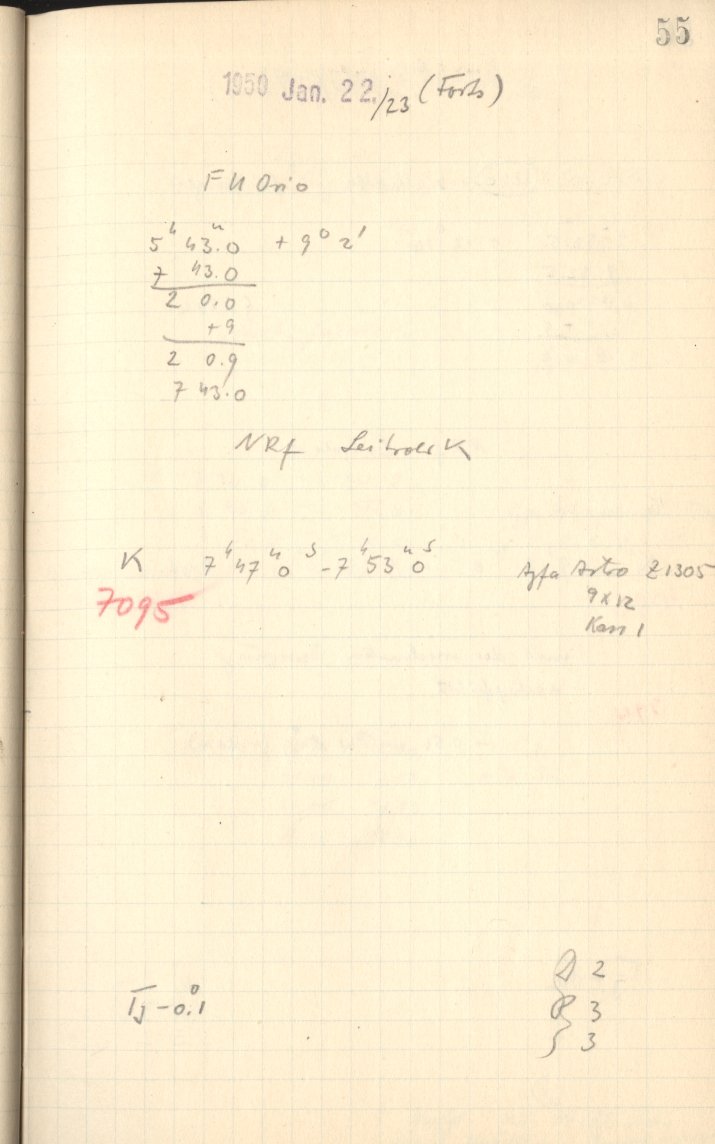 55
1950 Jan. 22./23 (Forts)
FU Orio
5ʰ 43ᵐ.0 + 9° 2'
7 43.0
2 0.0
+9
2 0.9
7 43.0
NRf Leitrohr K
K 7ʰ47ᵐ0ˢ - 7ʰ53ᵐ0ˢ Agfa Astro Z1305
7095 9x12
Kass 1
2
Tj - 0°.1 3
3